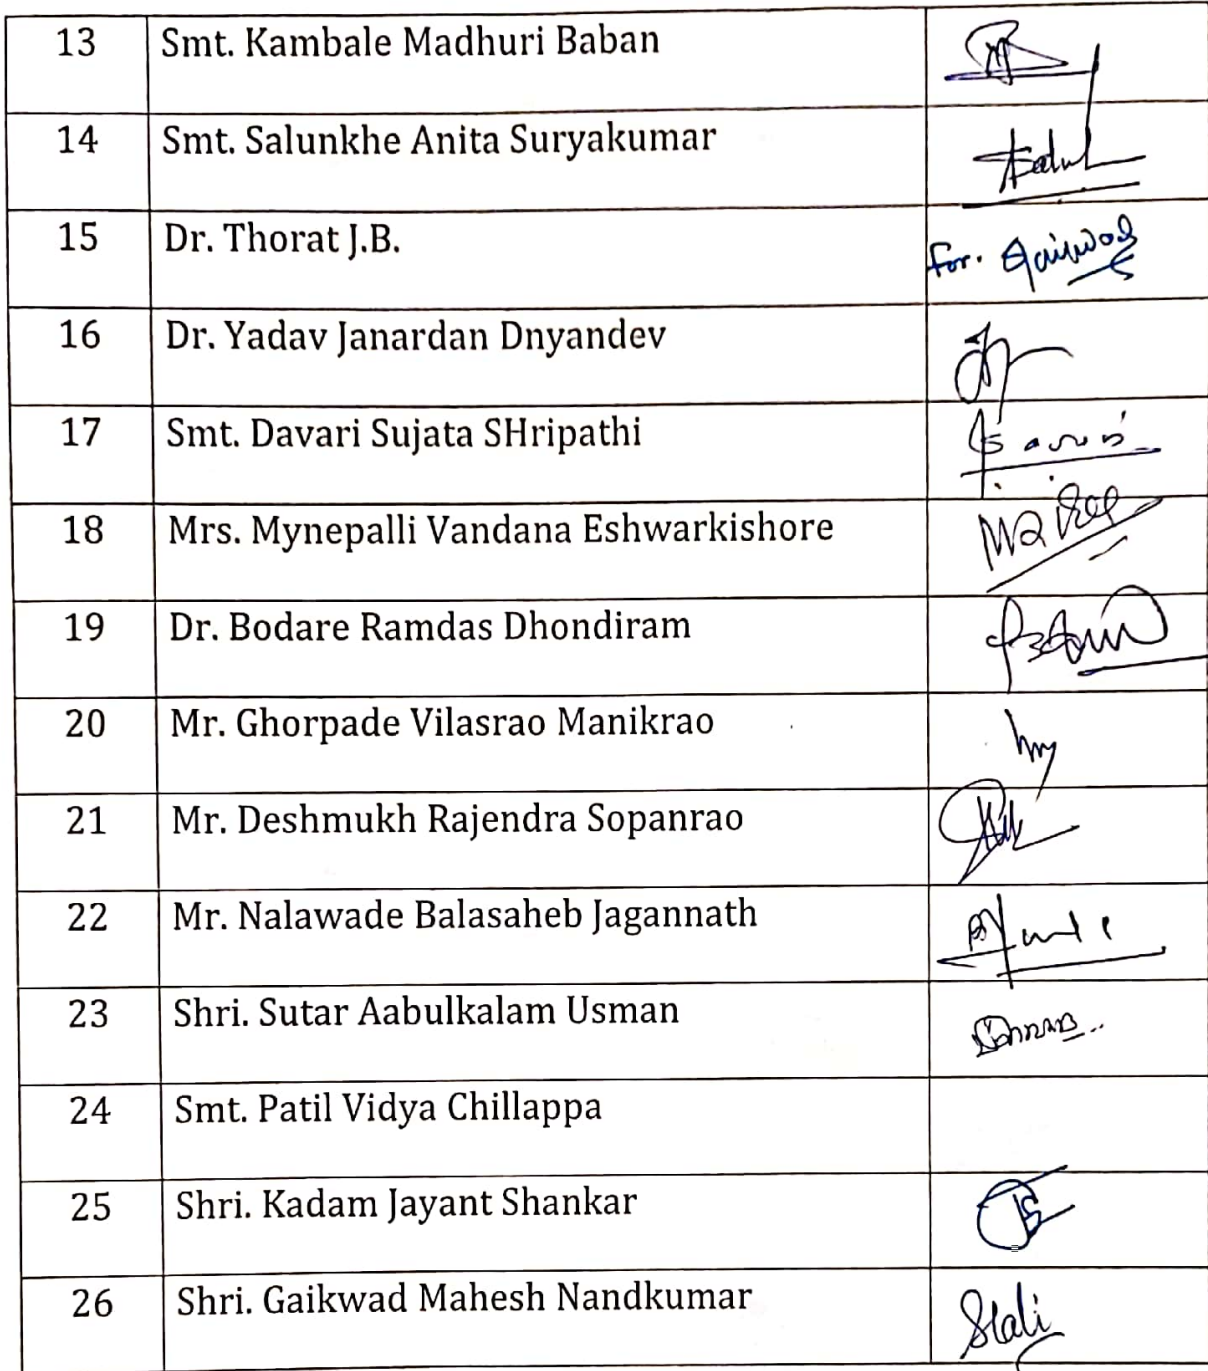 13 Smt. Kambale Madhuri Baban
14 Smt. Salunkhe Anita Suryakumar
15 Dr. Thorat J.B. for. Gaikwad
16 Dr. Yadav Janardan Dnyandev
17 Smt. Davari Sujata SHripathi
18 Mrs. Mynepalli Vandana Eshwarkishore
19 Dr. Bodare Ramdas Dhondiram
20 Mr. Ghorpade Vilasrao Manikrao
21 Mr. Deshmukh Rajendra Sopanrao
22 Mr. Nalawade Balasaheb Jagannath
23 Shri. Sutar Aabulkalam Usman
24 Smt. Patil Vidya Chillappa
25 Shri. Kadam Jayant Shankar
26 Shri. Gaikwad Mahesh Nandkumar